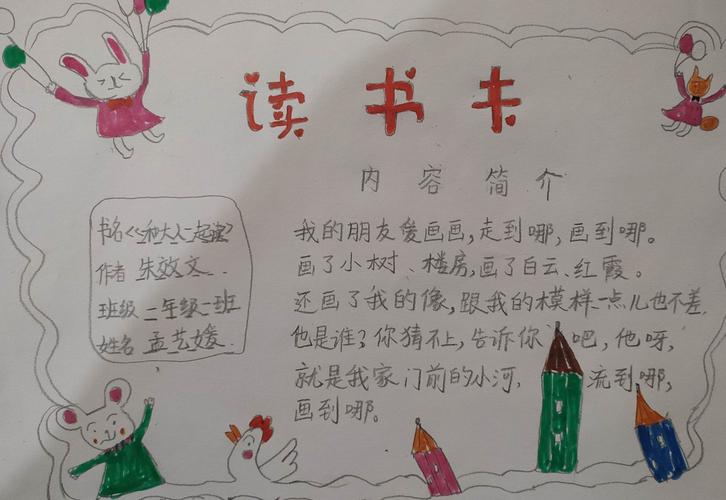 读书卡
内容简介
书名《和大人一起读》
作者 朱效文
班级 二年级一班
姓名 孟艺媛
我的朋友爱画画,走到哪,画到哪。
画了小树、楼房,画了白云、红霞。
还画了我的像,跟我的模样一点儿也不差.
他是谁?你猜不上,告诉你吧,他呀,
就是我家门前的小河,流到哪,
画到哪。